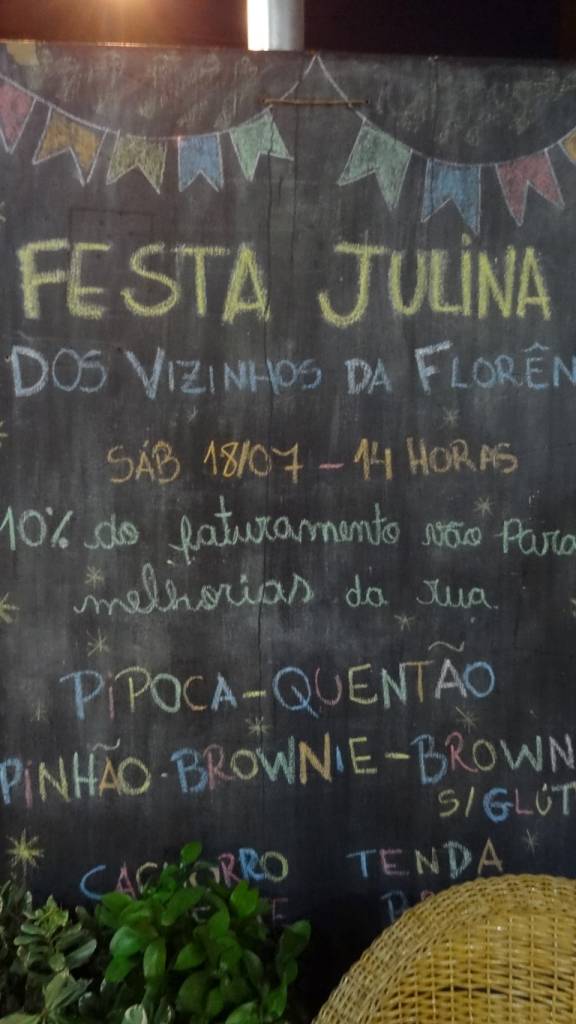 FESTA JULINA
DOS VIZINHOS DA FLORÊN
SÁB 18/07 - 14 HORAS
10% do faturamento vão para
melhorias da rua
PIPOCA - QUENTÃO
PINHÃO · BROWNIE - BROWN
S/ GLÚT
CACHORRO TENDA